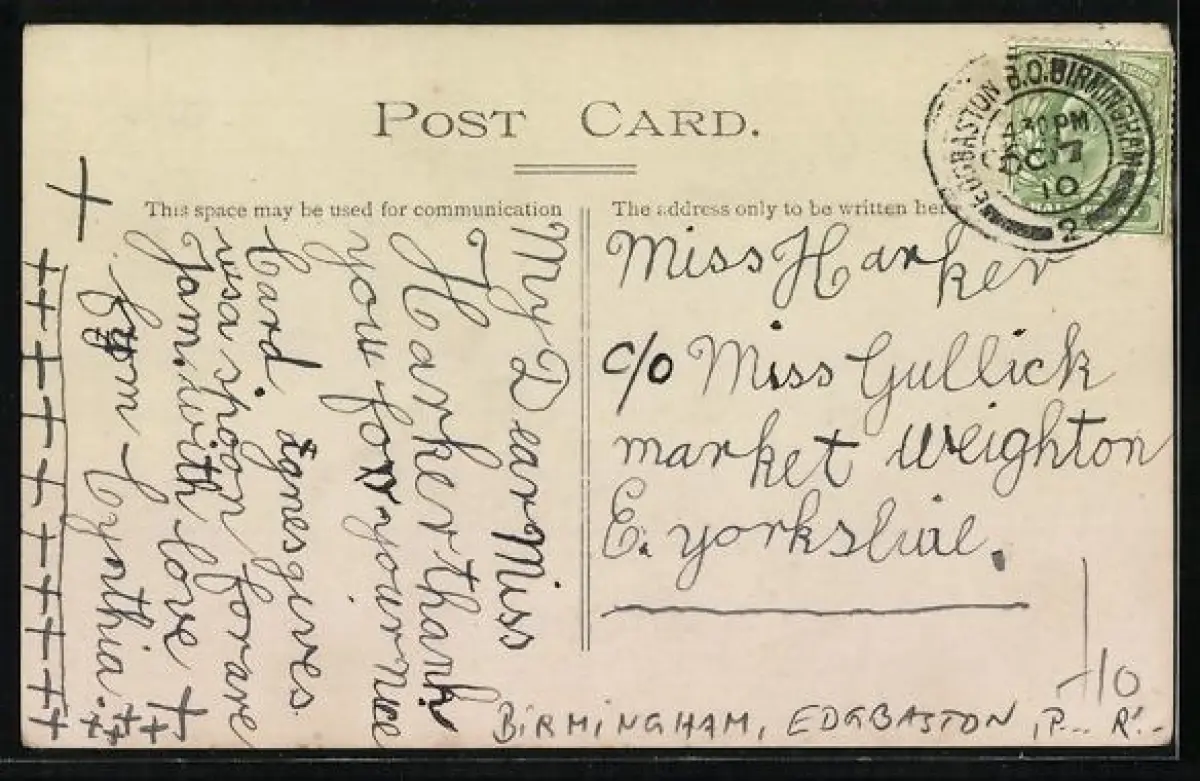 POST CARD.
This space may be used for communication
The address only to be written here
EDGBASTON B.O. BIRMINGHAM
4 30 PM
OC 17
10
2
My Dear Miss
Harker thank
you for your nice
Card. Agnes gives
us a spoon for are
Jam. with love +
from Cynthia.
Miss Harker
c/o Miss Gullick
market Weighton
E. yorkshire.
BIRMINGHAM, EDGBASTON, P... R!..
-10